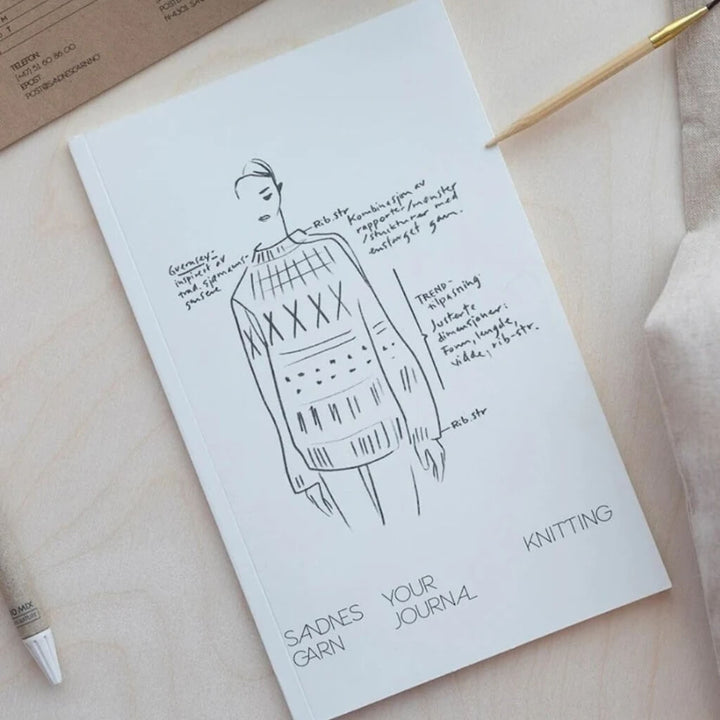 TELEFON
(+47) 51 60 86 00
EPOST
POST@SANDNESGARN.NO
Rib.str
Kombinasjon av
rapporter/mønster
/strukturer med
ensfarget garn.
Guernsey-
inspirert av
trad. sjømanns-
gensere
TREND-
tilpasning
Justerte
dimensjoner:
Form, lengde,
vidde, rib-str.
Rib.str
KNITTING
SANDNES
GARN
YOUR
JOURNAL
MIX